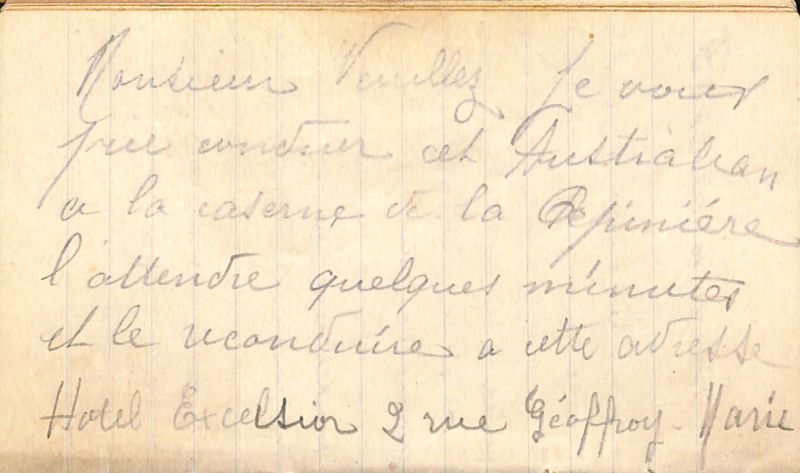 Monsieur Veuillez Je vous
prie conduir cet Australian
a la caserne de la Pepiniére
l'attendre quelques minutes
et le reconduire a cette adresse
Hotel Excelsior 2 rue Géoffroy-Marie